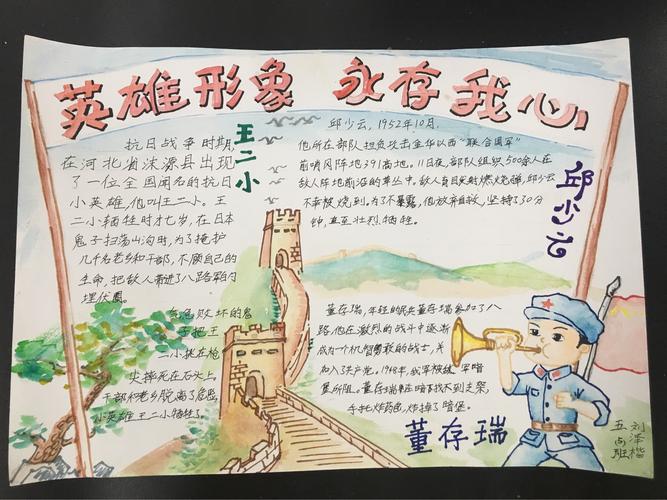 英雄形象 永存我心
王二小
抗日战争时期,
在河北省涞源县出现
了一位全国闻名的抗日
小英雄,他叫王二小。王
二小牺牲时才七岁,在日本
鬼子扫荡山沟时,为了掩护
几千名老乡和干部,不顾自己的
生命,把敌人带进了八路军的内
埋伏圈。
气急败坏的鬼
子把王
二小挑在枪
尖摔死在石头上。
干部和老乡脱离了危险,
小英雄王二小牺牲了。
邱少云
邱少云,1952年10月,
他所在部队担负攻击金华以西"联合国军"
前哨阵地391高地。11日夜,部队组织500余人在
敌人阵地前沿的草丛中。敌人盲目发射燃烧弹,邱少云
不幸被火烧到。为了不暴露,他放弃自救,坚持了30分
钟,直至壮烈牺牲。
董存瑞,年轻的民兵董存瑞参加了八
路,他在激烈的战斗中逐渐
成为一个机智勇敢的战士,并
加入了共产党。1948年,我军被敌军暗
堡所阻。董存瑞在暗下找不到支架,
手托炸药包,炸掉了暗堡。
董存瑞
五(4)班
刘泽楷